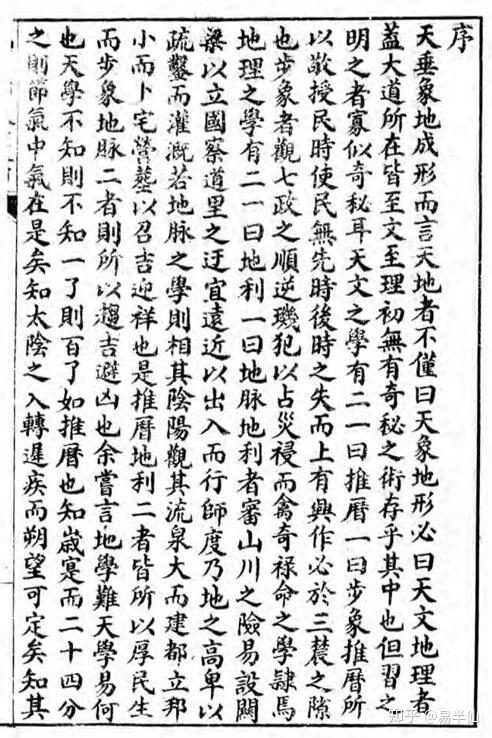 序
天垂象地成形而言天地者不僅曰天象地形必曰天文地理者
蓋大道所在皆至文至理初無有奇秘之術存乎其中也但習之
明之者寡似奇秘耳天文之學有二一曰推曆一曰步象推曆所
以敬授民時使民無先時後時之失而上有興作必於三農之隙
也步象者觀七政之順逆璣犯以占災祲而禽奇祿命之學隸焉
地理之學有二一曰地利一曰地脉地利者審山川之險易設關
梁以立國察道里之迂宜遠近以出入而行師度乃地之高卑以
疏鑿而灌溉若地脉之學則相其陰陽觀其流泉大而建都立邦
小而卜宅營塟以召吉迎祥也是推曆地利二者皆所以厚民生
而步象地脉二者則所以趨吉避凶也余嘗言地學難天學易何
也天學不知則不知一了則百了如推曆也知歲寔而二十四分
之則節氣中氣在是矣知太陰之入轉遲疾而朔望可定矣知其
知乎 @易半仙